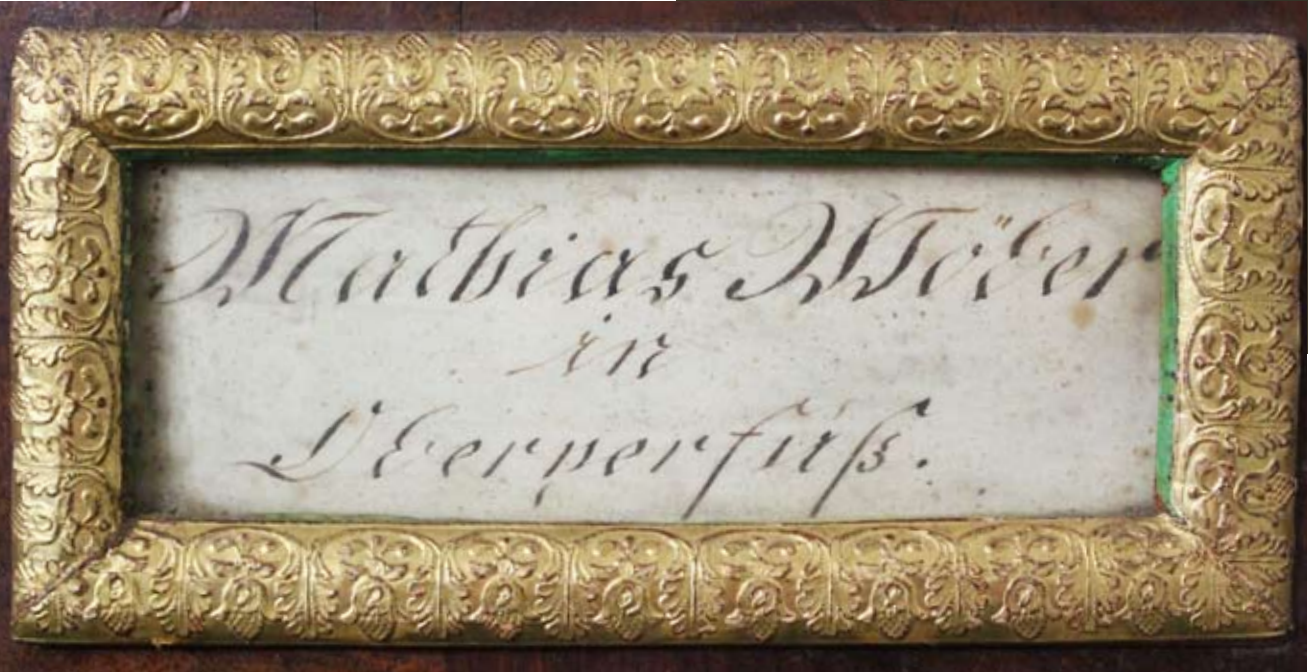 Mathias Wöber
in
Oberperfuß.